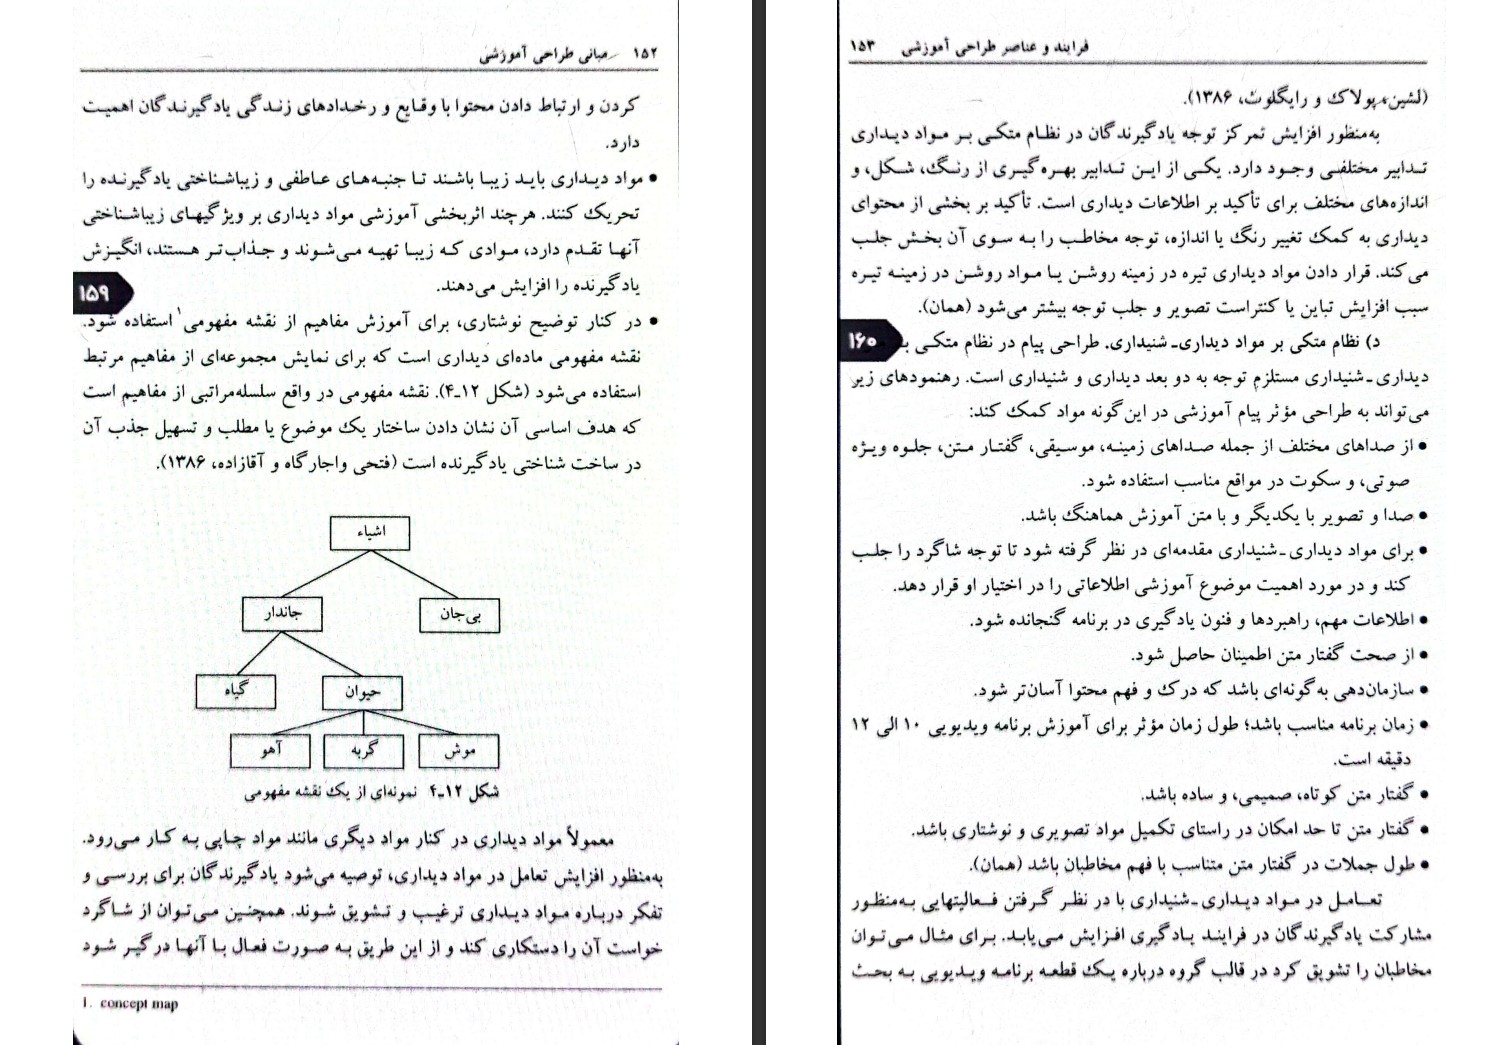 ۱۵۲ مبانی طراحی آموزشی
کردن و ارتباط دادن محتوا با وقایع و رخدادهای زندگی یادگیرندگان اهمیت
دارد.
• مواد دیداری باید زیبا باشند تا جنبه‌های عاطفی و زیباشناختی یادگیرنده را
تحریک کنند. هرچند اثربخشی آموزشی مواد دیداری بر ویژگیهای زیباشناختی
آنها تقدم دارد، موادی که زیبا تهیه می‌شوند و جذاب‌تر هستند، انگیزش
یادگیرنده را افزایش می‌دهند.
۱۵۹
• در کنار توضیح نوشتاری، برای آموزش مفاهیم از نقشه مفهومی۱ استفاده شود.
نقشه مفهومی ماده‌ای دیداری است که برای نمایش مجموعه‌ای از مفاهیم مرتبط
استفاده می‌شود (شکل ۱۲ـ۴). نقشه مفهومی در واقع سلسله‌مراتبی از مفاهیم است
که هدف اساسی آن نشان دادن ساختار یک موضوع یا مطلب و تسهیل جذب آن
در ساخت شناختی یادگیرنده است (فتحی واجارگاه و آقازاده، ۱۳۸۶).
اشیاء
جاندار
بی‌جان
گیاه
حیوان
آهو
گربه
موش
شکل ۱۲ـ۴ نمونه‌ای از یک نقشه مفهومی
معمولاً مواد دیداری در کنار مواد دیگری مانند مواد چاپی به کار می‌رود.
به‌منظور افزایش تعامل در مواد دیداری، توصیه می‌شود یادگیرندگان برای بررسی و
تفکر درباره مواد دیداری ترغیب و تشویق شوند. همچنین می‌توان از شاگرد
خواست آن را دستکاری کند و از این طریق به صورت فعال با آنها درگیر شود
1. concept map
فرایند و عناصر طراحی آموزشی ۱۵۳
(لشین، پولاک و رایگلوث، ۱۳۸۶).
به‌منظور افزایش تمرکز توجه یادگیرندگان در نظام متکی بر مواد دیداری
تدابیر مختلفی وجود دارد. یکی از این تدابیر بهره‌گیری از رنگ، شکل، و
اندازه‌های مختلف برای تأکید بر اطلاعات دیداری است. تأکید بر بخشی از محتوای
دیداری به کمک تغییر رنگ یا اندازه، توجه مخاطب را به سوی آن بخش جلب
می‌کند. قرار دادن مواد دیداری تیره در زمینه روشن یا مواد روشن در زمینه تیره
سبب افزایش تباین یا کنتراست تصویر و جلب توجه بیشتر می‌شود (همان).
۱۶۰
د) نظام متکی بر مواد دیداری‌ـ‌شنیداری. طراحی پیام در نظام متکی
دیداری‌ـ‌شنیداری مستلزم توجه به دو بعد دیداری و شنیداری است. رهنمودهای زیر
می‌تواند به طراحی مؤثر پیام آموزشی در این‌گونه مواد کمک کند:
• از صداهای مختلف از جمله صداهای زمینه، موسیقی، گفتار متن، جلوه ویژه
صوتی، و سکوت در مواقع مناسب استفاده شود.
• صدا و تصویر با یکدیگر و با متن آموزش هماهنگ باشد.
• برای مواد دیداری‌ـ‌شنیداری مقدمه‌ای در نظر گرفته شود تا توجه شاگرد را جلب
کند و در مورد اهمیت موضوع آموزشی اطلاعاتی را در اختیار او قرار دهد.
• اطلاعات مهم، راهبردها و فنون یادگیری در برنامه گنجانده شود.
• از صحت گفتار متن اطمینان حاصل شود.
• سازمان‌دهی به‌گونه‌ای باشد که درک و فهم محتوا آسان‌تر شود.
• زمان برنامه مناسب باشد؛ طول زمان مؤثر برای آموزش برنامه ویدیویی ۱۰ الی ۱۲
دقیقه است.
• گفتار متن کوتاه، صمیمی، و ساده باشد.
• گفتار متن تا حد امکان در راستای تکمیل مواد تصویری و نوشتاری باشد.
• طول جملات در گفتار متن متناسب با فهم مخاطبان باشد (همان).
تعامل در مواد دیداری‌ـ‌شنیداری با در نظر گرفتن فعالیتهایی به‌منظور
مشارکت یادگیرندگان در فرایند یادگیری افزایش می‌یابد. برای مثال می‌توان
مخاطبان را تشویق کرد در قالب گروه درباره یک قطعه برنامه ویدیویی به بحث